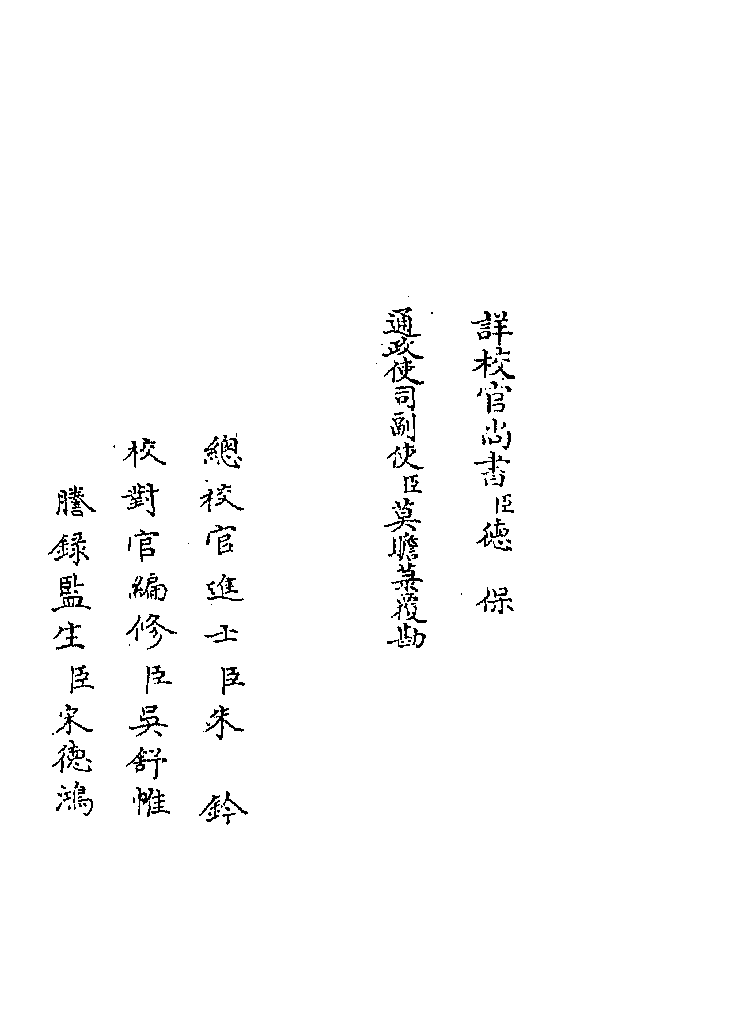 詳校官尚書臣德保
通政使司副使臣莫瞻菉覆勘
總校官進士臣朱鈐
校對官編修臣吳舒帷
謄錄監生臣宋德鴻